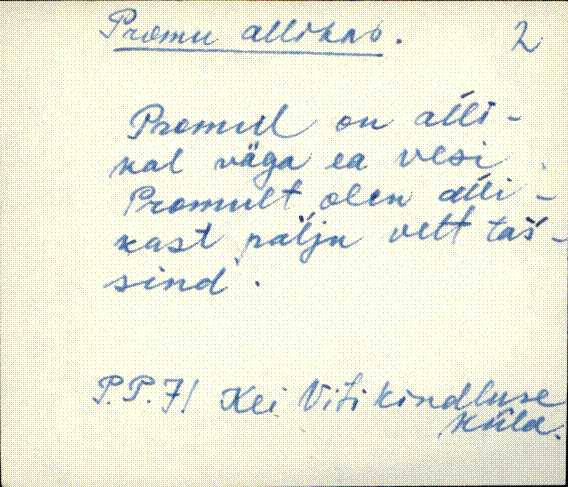 Promu allikas. 2
Promul on alli-
kal väga ea vesi.
Promult olen alli-
kast palju vett tas-
sind.
P.P.71 Kei Viti kindluse
küla.